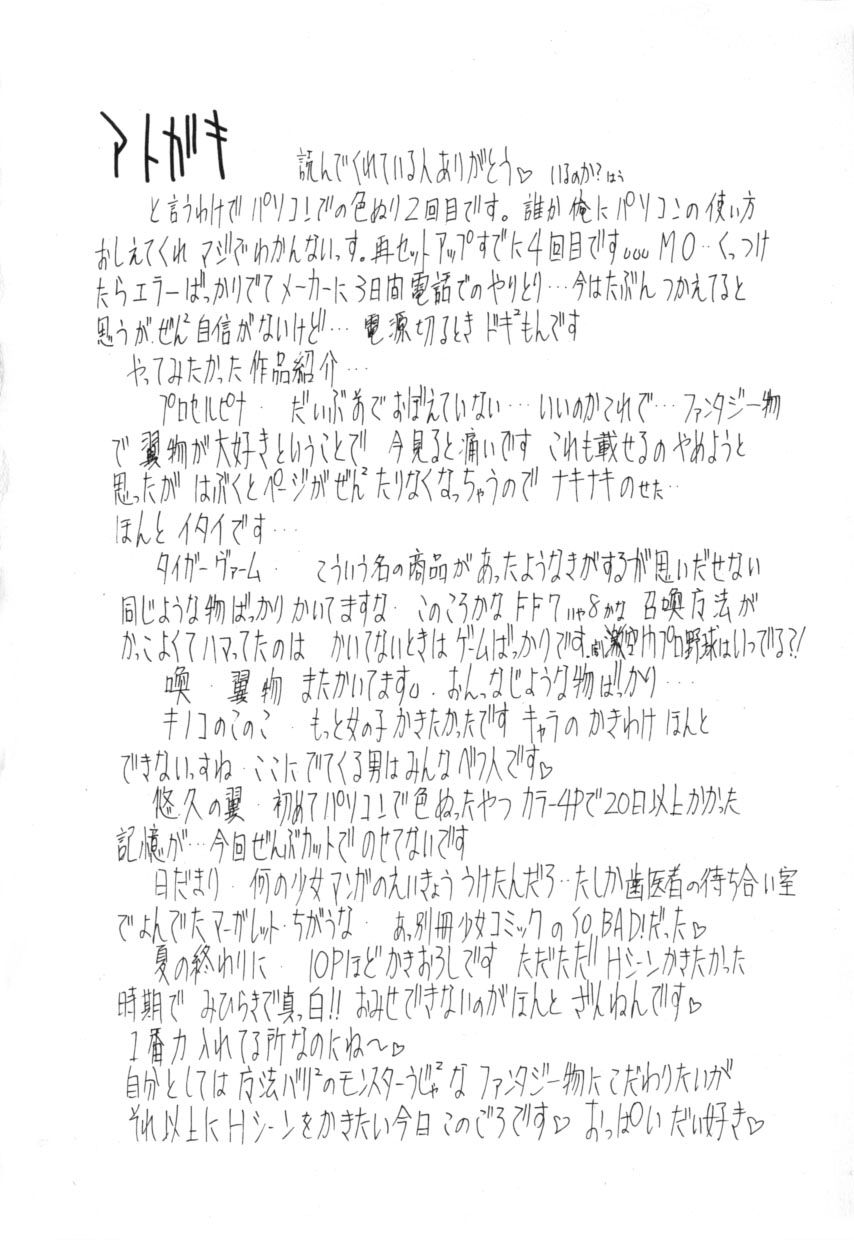 アトガキ
読んでくれている人ありがとう♡ いるのか?はぅ
と言うわけで パソコンでの色ぬり2回目です。誰か俺にパソコンの使い方
おしえてくれ マジでわかんないっす。再セットアップすでに4回目です。。。MO‥くっつけ
たらエラーばっかりでてメーカーに3日間電話でのやりとり…今はたぶんつかえてると
思うが、ぜん²自信がないけど… 電源切るとき ドキ²もんです
やってみたかった作品紹介…
プロセルピナ・ だいぶ前でおぼえていない…いいのかこれで…ファンタジー物
で翼物が大好きということで 今見ると痛いです これも載せるのやめようと
思ったが はぶくとページがぜん²たりなくなっちゃうので ナキナキのせた‥
ほんと イタイです…
タイガーヴァーム・ こういう名の商品があったようなきがするが思いだせない
同じような物ばっかりかいてますな・ このころかなFF7いや8かな 召喚方法が
かっこよくてハマってたのは かいてないときはゲームばっかりです 激空間プロ野球はいつでる?!
喚・翼物 またかいてます。おんなじような物ばっかり…
キノコのこのこ・ もっと女の子かきたかったです キャラのかきわけ ほんと
できないっすね・ここにでてくる男はみんなべつ人です♡
悠久の翼・初めてパソコンで色ぬったやつ カラー4Pで20日以上かかった
記憶が…今回ぜんぶカットでのせてないです
日だまり・ 何の少女マンガのえいきょううけたんだろ‥たしか歯医者の待ち合い室
でよんでたマーガレット・ちがうな・ あっ別冊少女コミックのSO BAD!だった♡
夏の終わりに・ 10Pほどかきおろしです ただただ!!Hシーンかきたかった
時期で みひらきで真っ白!! おみせできないのがほんと ざんねんです♡
1番力入れてる所なのにね〜♡
自分としては 方法バリ²のモンスターうじゃ²な ファンタジー物にこだわりたいが
それ以上にHシーンをかきたい今日このごろです♡ おっぱいだい好き♡